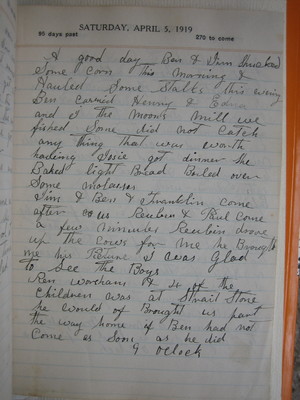 SATURDAY, APRIL 5, 1919
95 days past 270 to come
A good day Ben & Jim Shucked
Some corn this morning &
Hauled Some Stalks this evning
Ben carried Henny & Edna
and I the Moon's Mill we
fished Some did not Catch
any thing that was worth
haveing Josie got dinner She
Baked light Bread Boiled over
Some molasses
Jim & Ben & Franklin come
after us Reuben & Paul Come
a few minutes Reubin drove
up the Cows for me he Brought
me his Picture I was Glad
to See the Boys
Ran & 2 of the
Children was at Strait Store
he would of Brought us part
the way home if Ben had not
Come as Soon as he did
9 Oclock